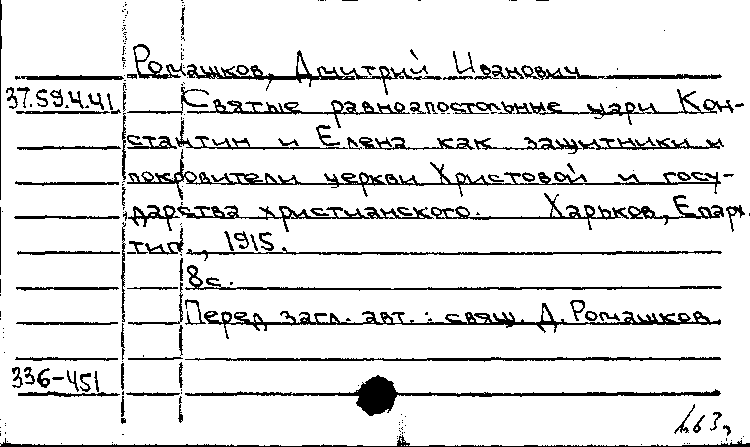 Ромашков, Дмитрий Иванович
37.59.4.41 Святые равноапостольные цари Кон-
стантин и Елена как защитники и
покровители церкви Христовой и госу-
дарства христианского. Харьков, Епарх.
тип., 1915.
8с.
Перед загл. авт.: свящ. Д. Ромашков
336-451